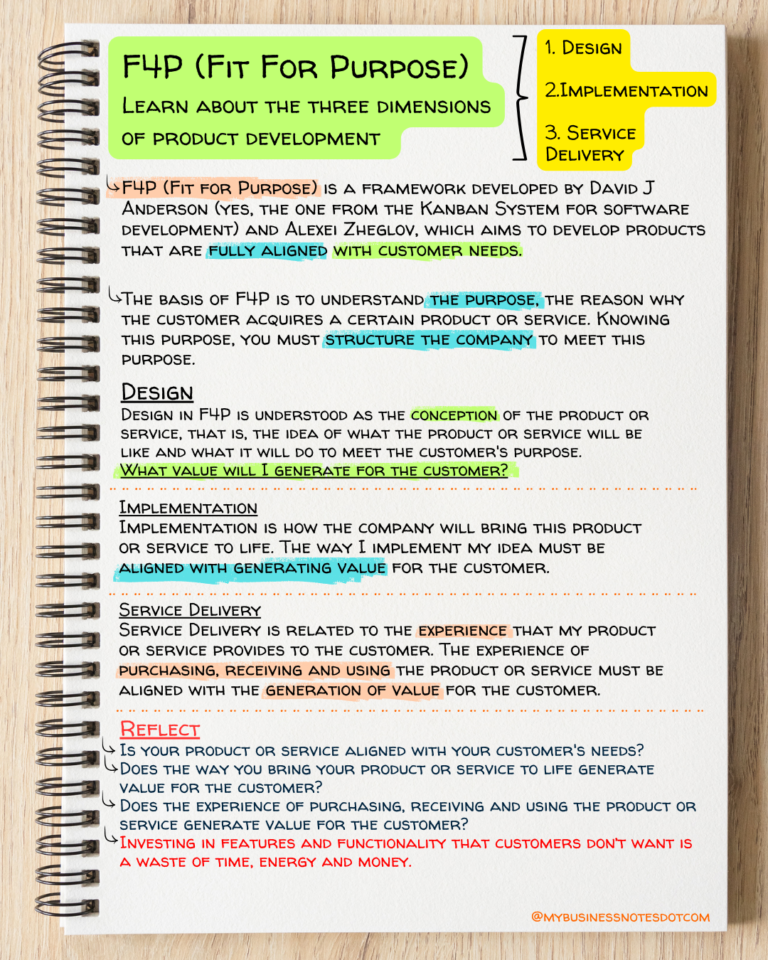 F4P (Fit For Purpose)
Learn about the three dimensions
of product development
1. Design
2.Implementation
3. Service
Delivery
F4P (Fit for Purpose) is a framework developed by David J
Anderson (yes, the one from the Kanban System for software
development) and Alexei Zheglov, which aims to develop products
that are fully aligned with customer needs.
The basis of F4P is to understand the purpose, the reason why
the customer acquires a certain product or service. Knowing
this purpose, you must structure the company to meet this
purpose.
Design
Design in F4P is understood as the conception of the product or
service, that is, the idea of what the product or service will be
like and what it will do to meet the customer's purpose.
What value will I generate for the customer?
Implementation
Implementation is how the company will bring this product
or service to life. The way I implement my idea must be
aligned with generating value for the customer.
Service Delivery
Service Delivery is related to the experience that my product
or service provides to the customer. The experience of
purchasing, receiving and using the product or service must be
aligned with the generation of value for the customer.
Reflect
Is your product or service aligned with your customer's needs?
Does the way you bring your product or service to life generate
value for the customer?
Does the experience of purchasing, receiving and using the product or
service generate value for the customer?
Investing in features and functionality that customers don't want is
a waste of time, energy and money.
@mybusinessnotesdotcom